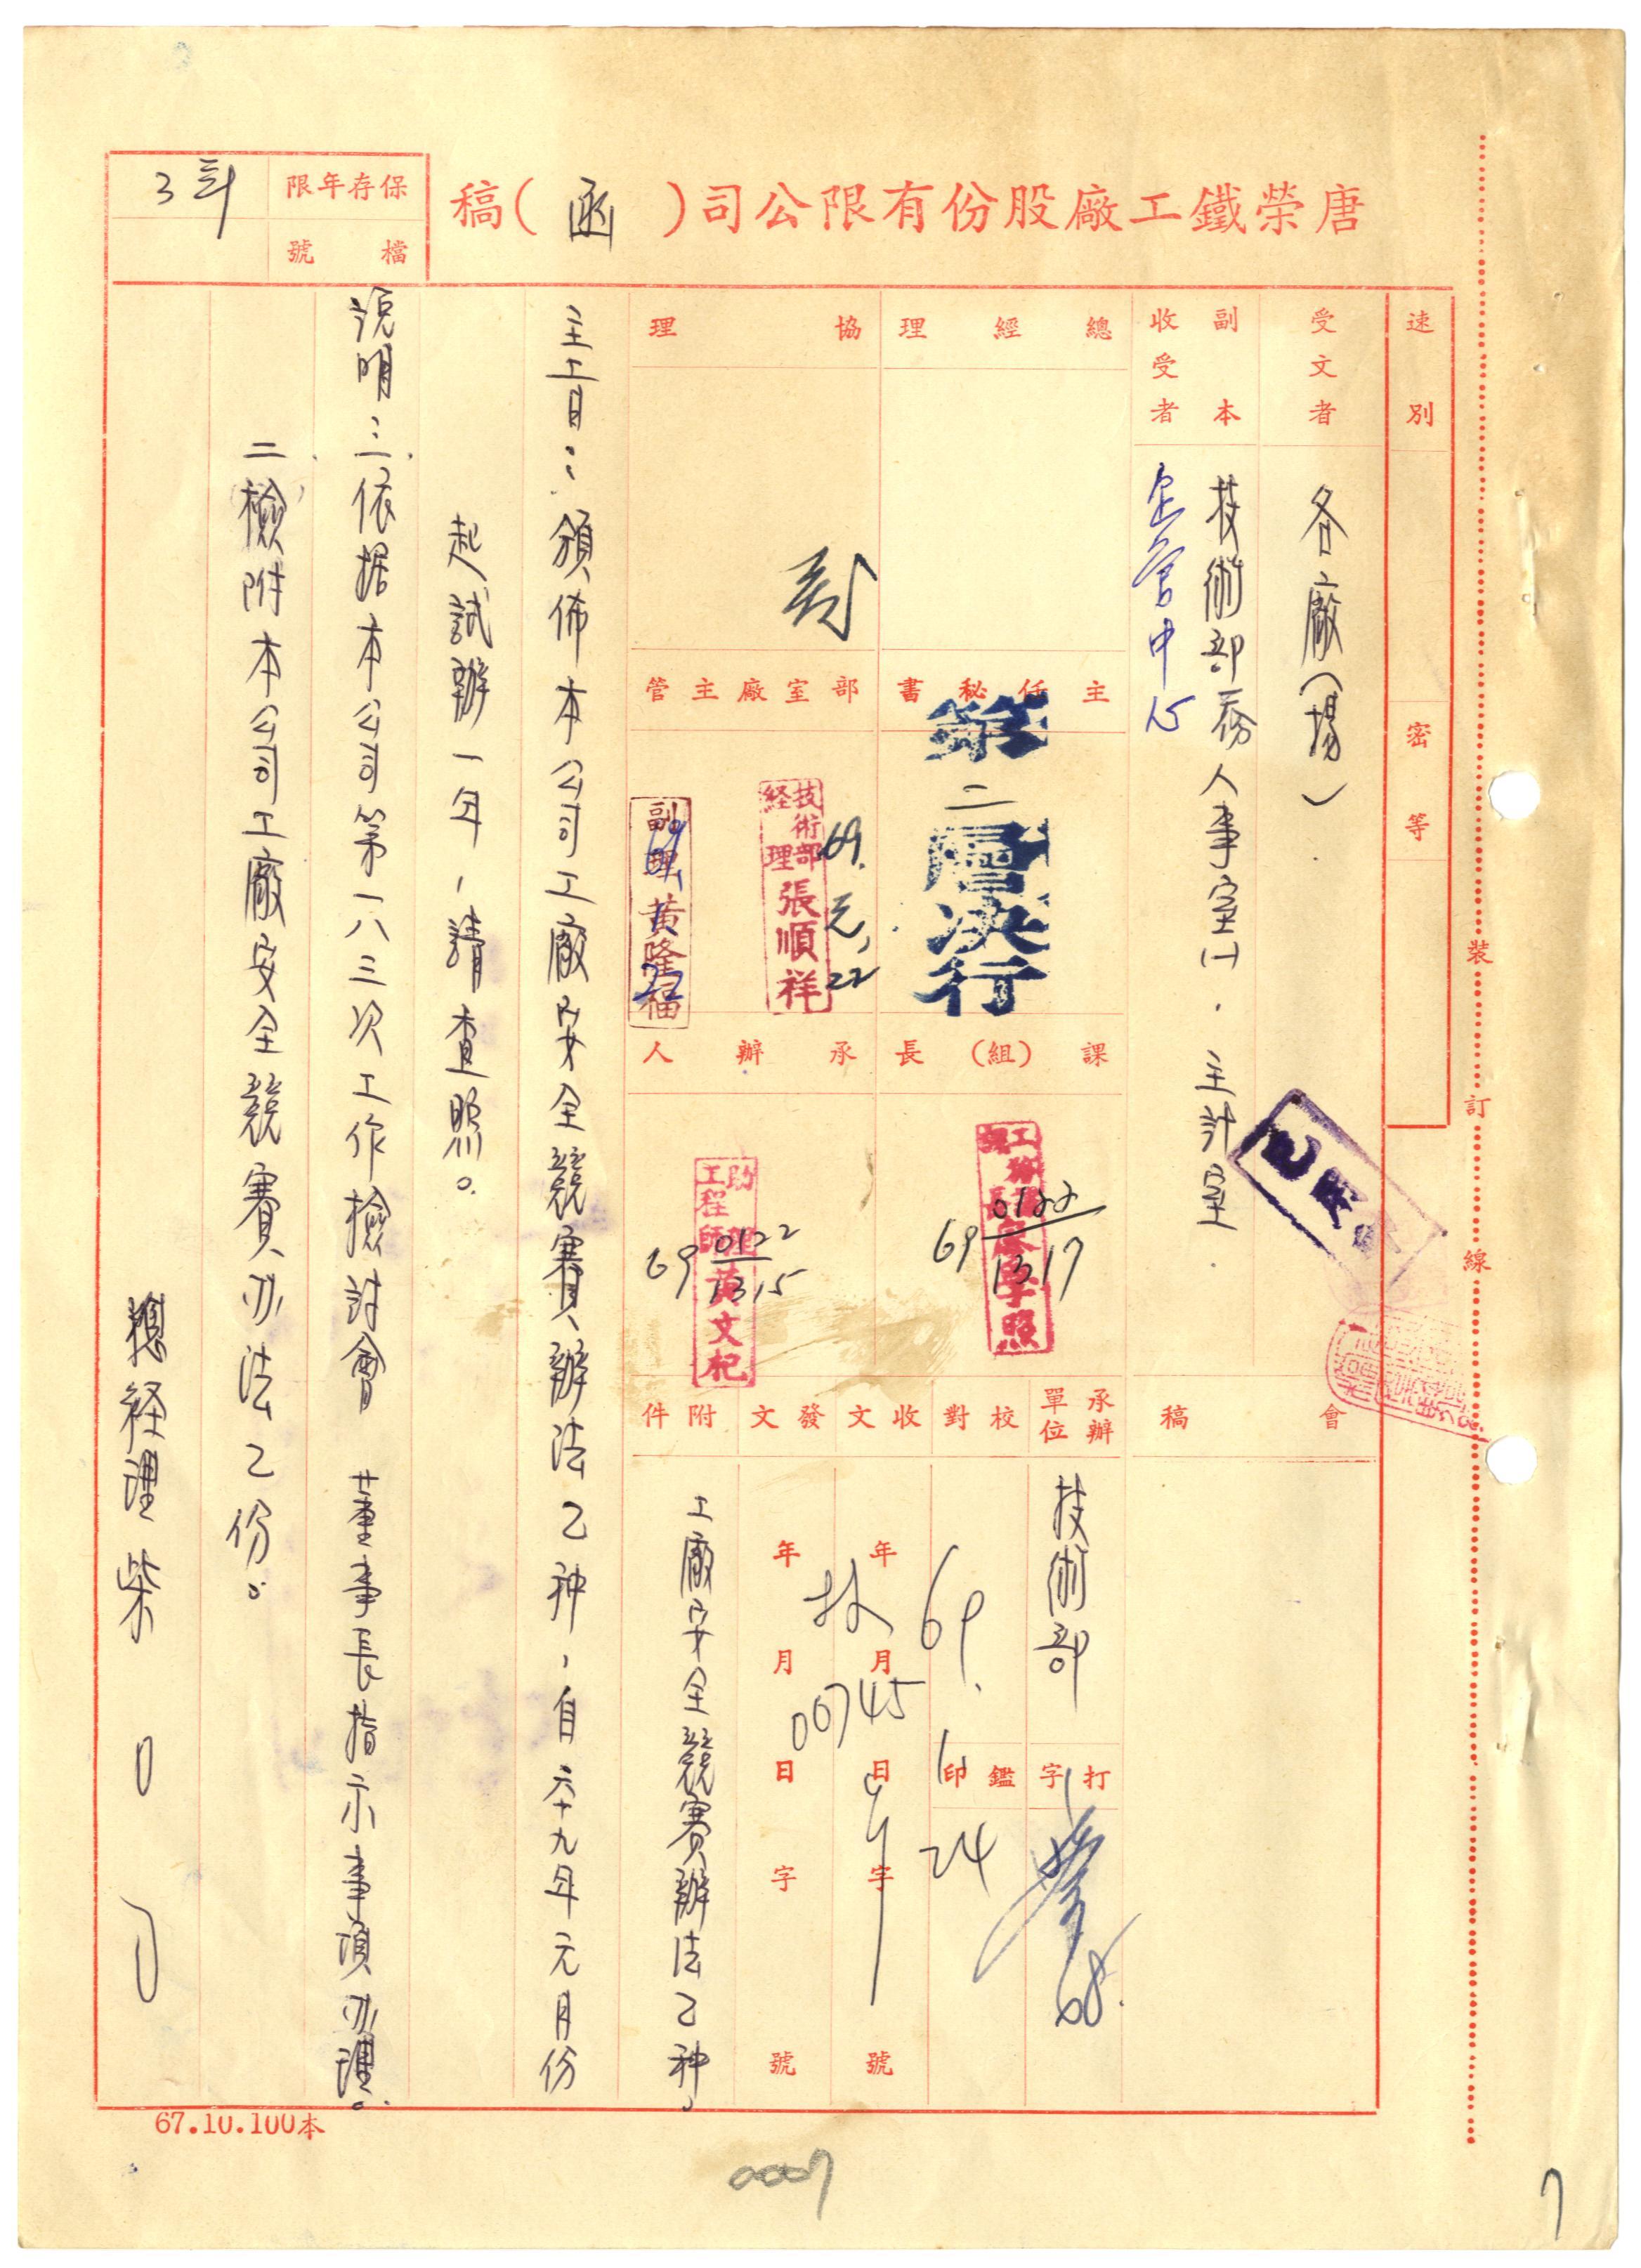 唐榮鐵工廠股份有限公司(函)稿
保存年限
3年
檔號
速別
密等
受文者
各廠(場)
副本收受者
技術部、人事室(一)、主計室
企管中心
會稿
總經理
協理
主任秘書
第二層決行
部室廠主管
技術部經理張順祥
69.元.22
副理黃隆福
課(組)長
69 0122
1317
承辦人
助理工程師黃文杞
69 0122
1315
已用印
承辦單位
技術部
校對
收文
發文
附件
打字
鑑印
69.
24
68.
年月日字號
年月日字號
技
00745
工廠安全競賽辦法乙种
主旨：頒佈本公司工廠安全競賽辦法乙种，自六十九年元月份
起試辦一年，請查照。
說明：一、依据本公司第一八三次工作檢討會 董事長指示事項办理。
二、檢附本公司工廠安全競賽办法乙份。
總經理柴 ○ ○
裝
訂
線
67.10.100本
0007
7